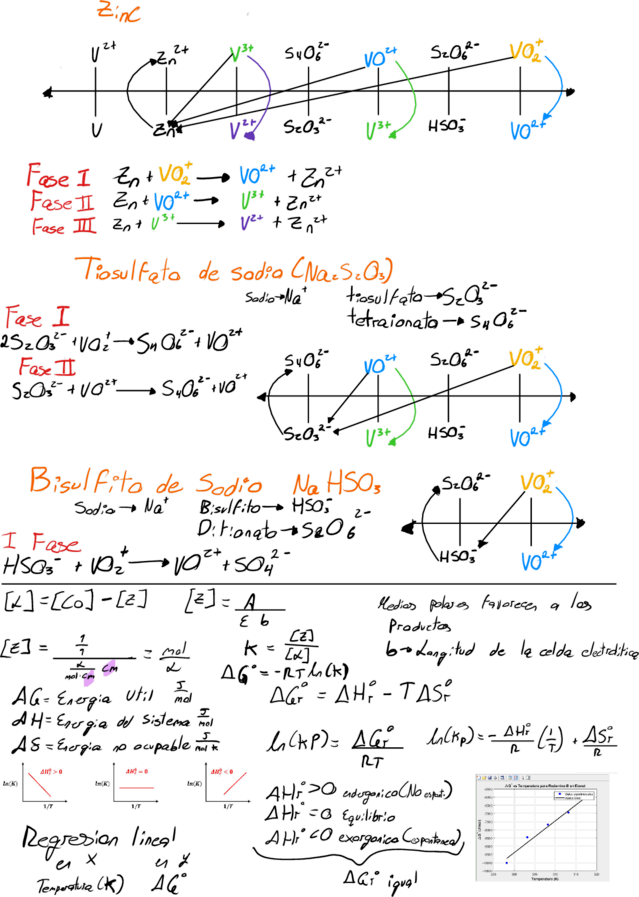 Zinc
V²⁺ Zn²⁺ V³⁺ S₄O₆²⁻ VO²⁺ S₂O₆²⁻ VO₂⁺
V Zn V²⁺ S₂O₃²⁻ V³⁺ HSO₃⁻ VO²⁺
Fase I Zn + VO₂⁺ → VO²⁺ + Zn²⁺
Fase II Zn + VO²⁺ → V³⁺ + Zn²⁺
Fase III Zn + V³⁺ → V²⁺ + Zn²⁺
Tiosulfato de sodio (Na₂S₂O₃)
Sodio → Na⁺ tiosulfato → S₂O₃²⁻
tetraionato → S₄O₆²⁻
Fase I
2S₂O₃²⁻ + VO₂⁺ → S₄O₆²⁻ + VO²⁺
Fase II
S₂O₃²⁻ + VO²⁺ → S₄O₆²⁻ + VO²⁺
S₄O₆²⁻ VO²⁺ S₂O₆²⁻ VO₂⁺
S₂O₃²⁻ V³⁺ HSO₃⁻ VO²⁺
Bisulfito de Sodio NaHSO₃
Sodio → Na⁺ Bisulfito → HSO₃⁻
Ditionato → S₂O₆²⁻
S₂O₆²⁻ VO₂⁺
HSO₃⁻ VO²⁺
I Fase
HSO₃⁻ + VO₂⁺ → VO²⁺ + SO₄²⁻
[L] = [Co] - [Z] [Z] = A / ε b
Medios polares favorecen a los
Productos
b → Longitud de la celda electrolitica
[Z] = (1/1) / (L/mol·cm cm) = mol/L
K = [Z]/[L]
ΔG° = -RT ln(K)
ΔG = Energia Util J/mol
ΔH = Energia del Sistema J/mol
ΔS = Energia no ocupable J/mol K
ΔGr° = ΔHr° - TΔSr°
ln(Kp) = ΔGr°/RT ln(Kp) = -ΔHr°/R (1/T) + ΔSr°/R
ΔH°r > 0 ΔH°r = 0 ΔH°r < 0
ln(K) ln(K) ln(K)
1/T 1/T 1/T
ΔHr° > 0 endorganico (No espont.)
ΔHr° = 0 Equilibrio
ΔHr° < 0 exorganico (espontanea)
ΔGr° igual
Regresion lineal
en X en y
Temperatura (K) ΔG°
ΔG° vs Temperatura para Rodamina B en Etanol
Temperatura (K)